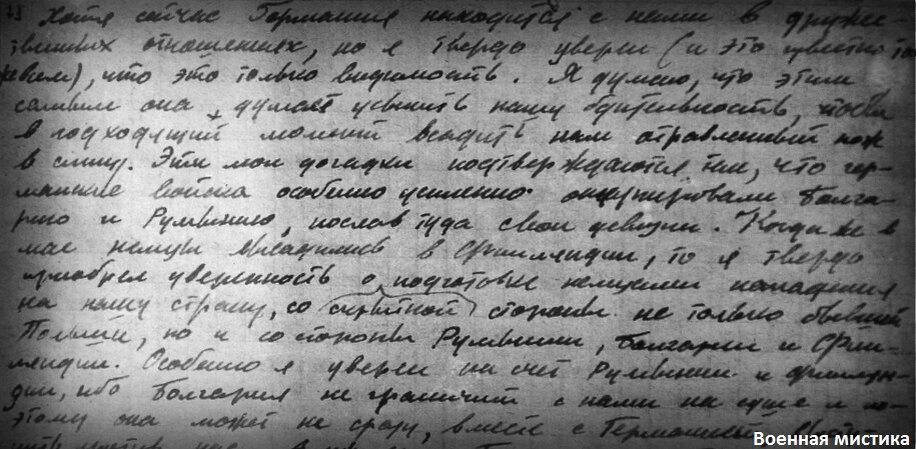 Хотя сейчас Германия находится с нами в друже-
ственных отношениях, но я твердо уверен (и это известно
всем), что это только видимость. Я думаю, что этим
самым она думает усыпить нашу бдительность, чтобы
в подходящий момент всадить нам отравленный нож
в спину. Эти мои догадки подтверждаются тем, что гер-
манские войска особенно усиленно оккупировали Болга-
рию и Румынию, послав туда свои дивизии. Когда же в
мае немцы высадились в Финляндии, то я твердо
приобрел уверенность о подготовке немцами нападения
на нашу страну, со скрытной стороны не только бывшей
Польши, но и со стороны Румынии, Болгарии и Фин-
ляндии. Особенно я уверен на счет Румынии и Финлян-
дии, ибо Болгария не граничит с нами на суше и по-
этому она может не сразу, вместе с Германией
Военная мистика